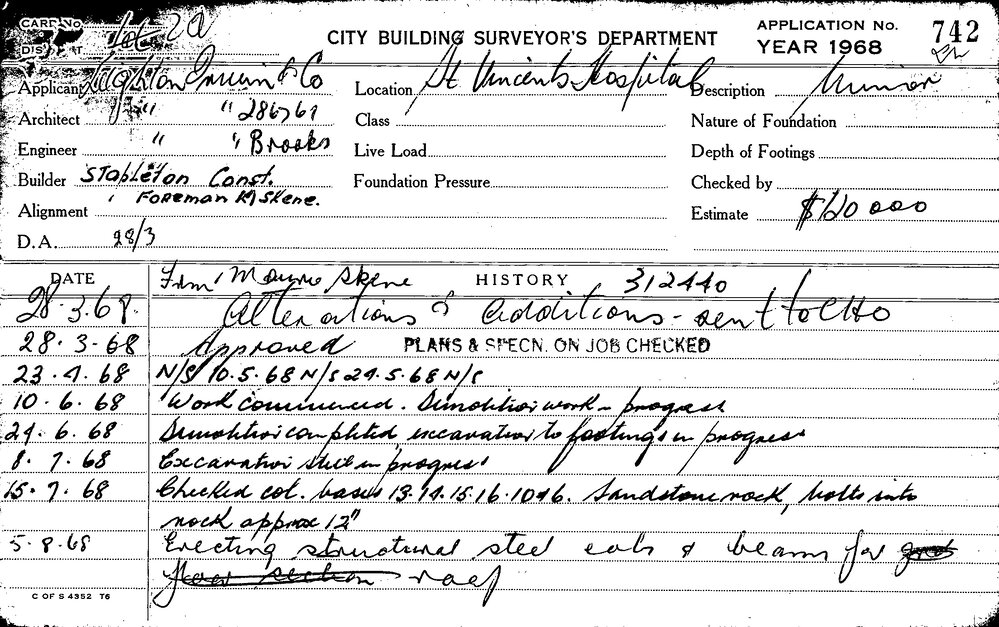 CARD No
Lot 2a
DIST
CITY BUILDING SURVEYOR'S DEPARTMENT
APPLICATION No. 742
YEAR 1968
Applicant Leighton Irwin & Co
Location St Vincents Hospital
Description Minor
Architect " " 286761
Class
Nature of Foundation
Engineer " " Brooks
Live Load
Depth of Footings
Builder Stapleton Const.
Foundation Pressure
Checked by
Foreman M Skene.
Alignment
Estimate $120 000
D.A. 28/3
DATE
HISTORY 312440
28.3.68. Alterations & additions - sent to CHO
28.3.68 Approved PLANS & SPECN. ON JOB CHECKED
23.4.68 N/S 10.5.68 N/S 24.5.68 N/S
10.6.68 Work commenced. Demolition work in progress
24.6.68 Demolition completed excavation to footings in progress
8.7.68 Excavation still in progress
15.7.68 Checked col. bases 13.14.15.16.10&6. Sandstone rock, bolts into
rock approx 12"
5.8.68 Erecting structural steel cols & beams for
floor section roof
C OF S 4352 T6